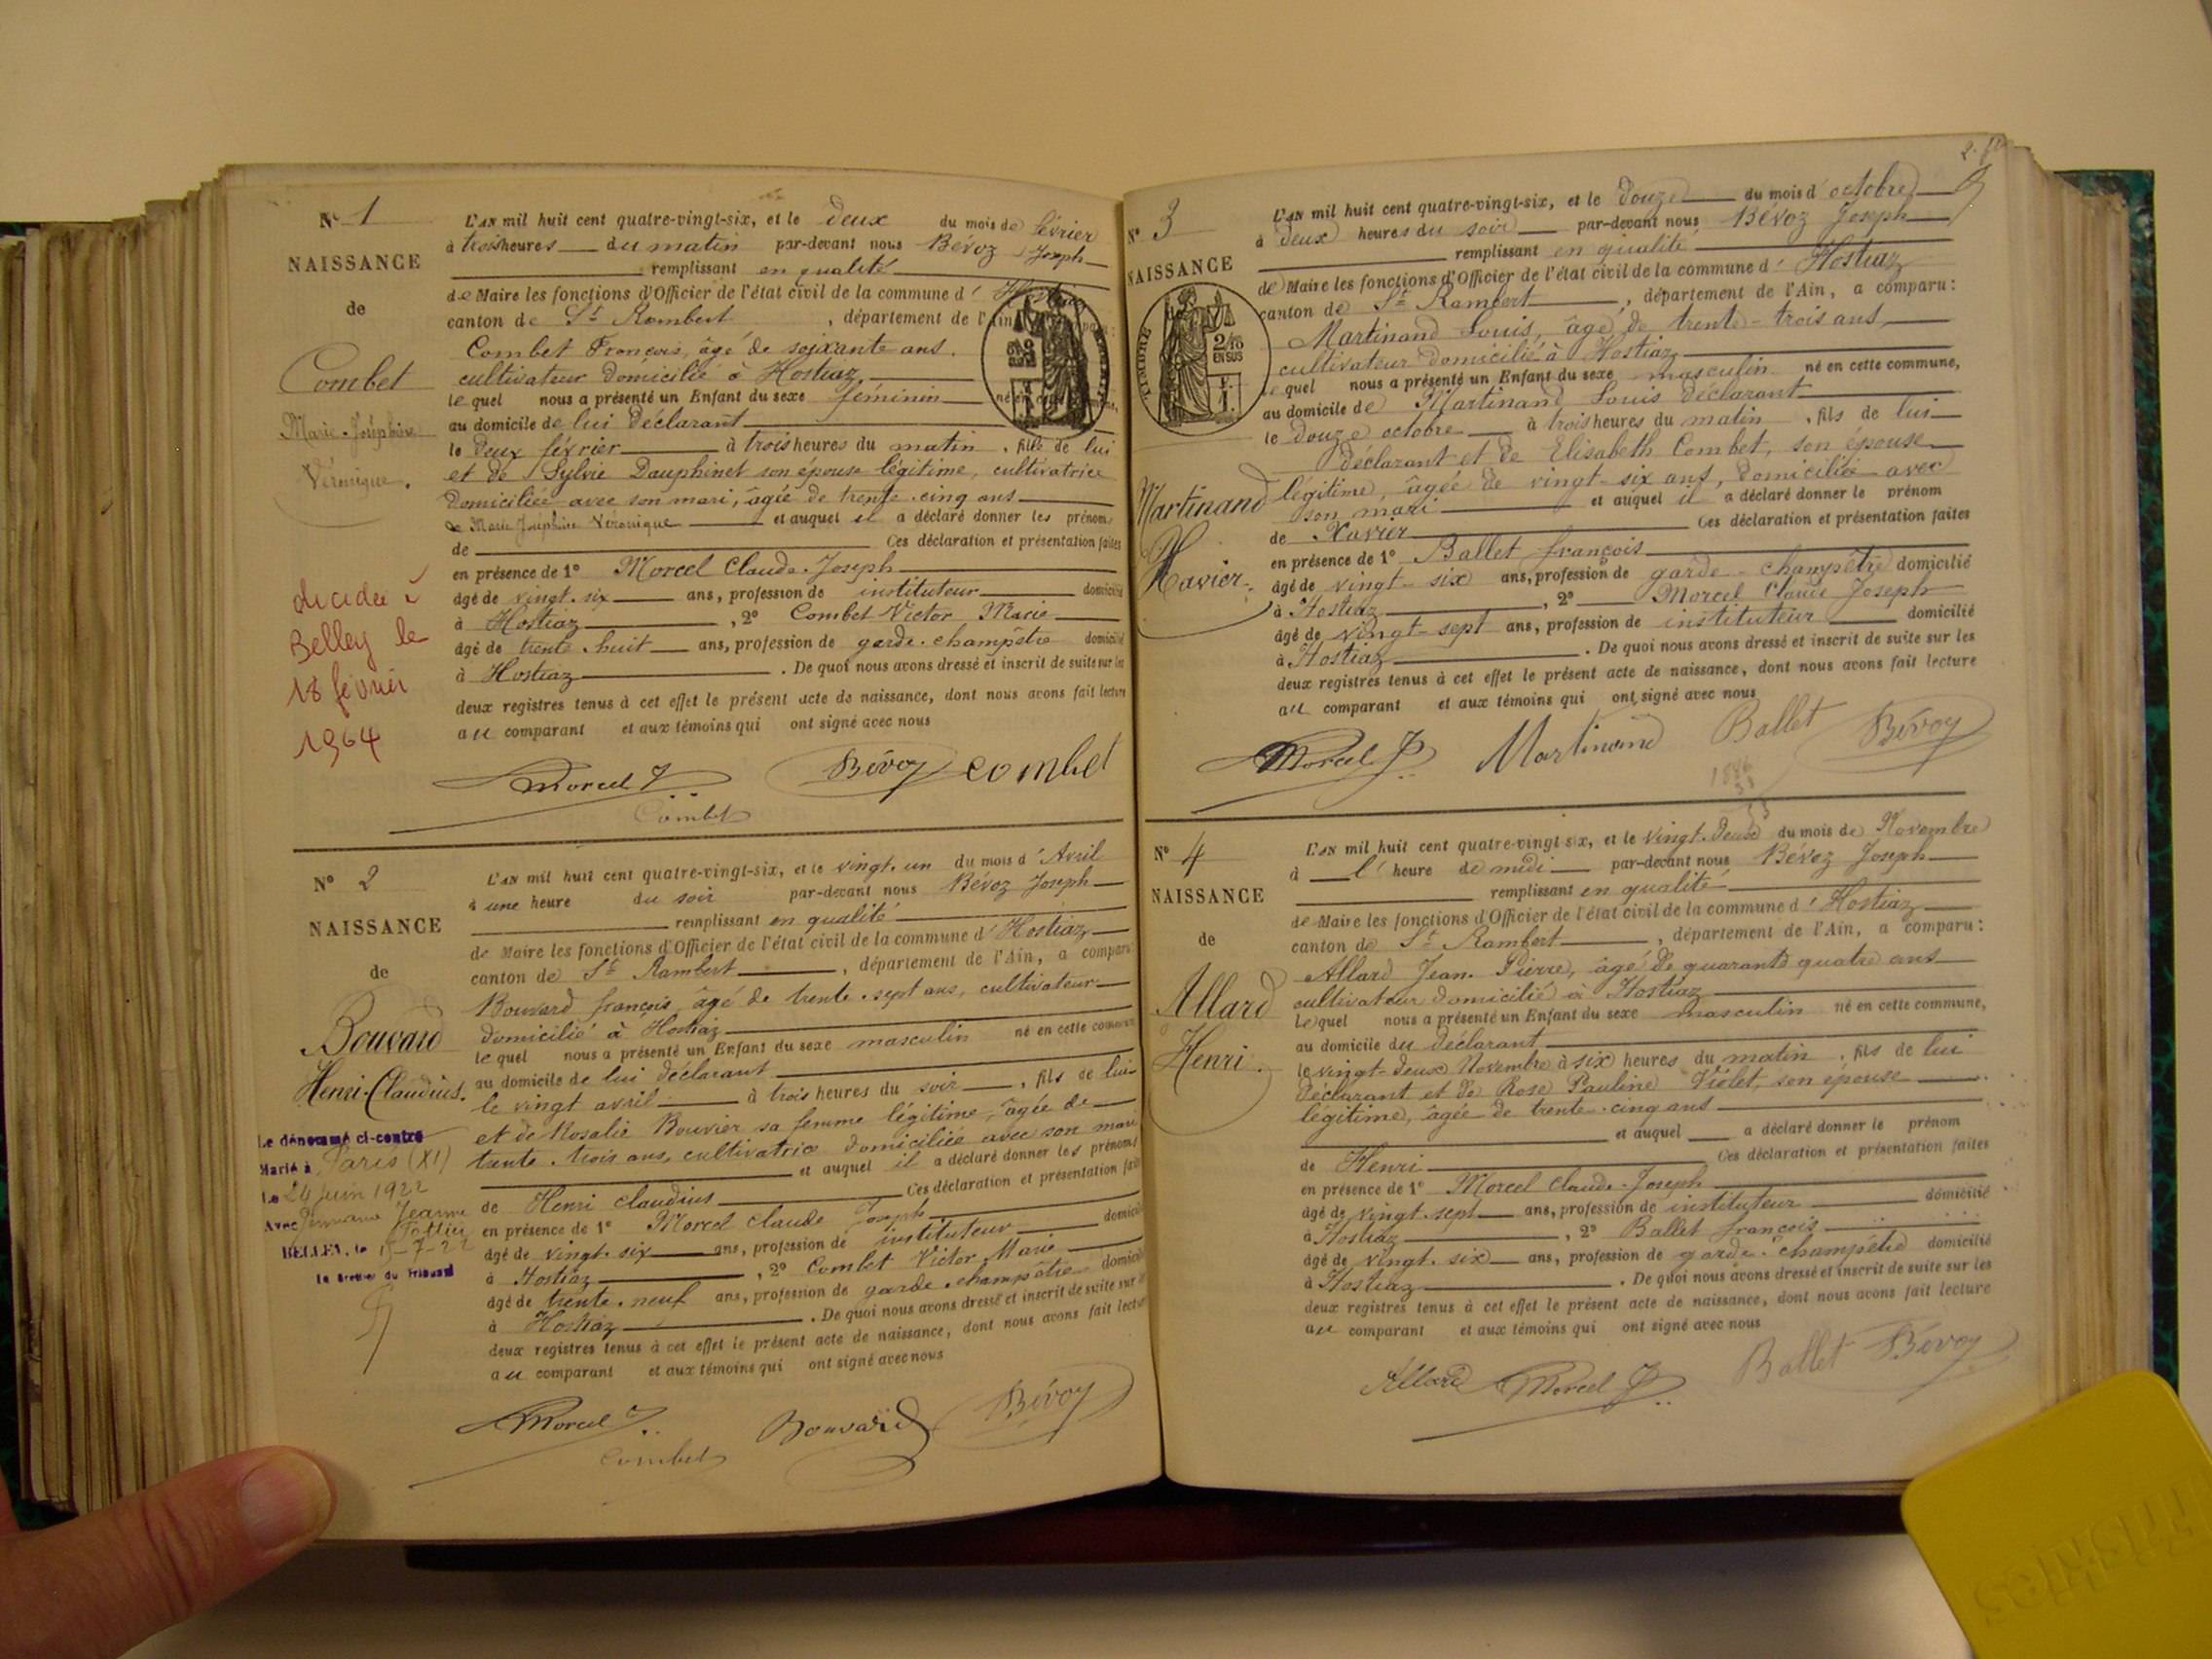 N° 1
NAISSANCE
de
Combet
Marie-Joséphine
Véronique.
décédée à
Belley le
18 février
1964
L'AN mil huit cent quatre-vingt-six, et le deux du mois de février
à trois heures du matin par-devant nous Bévoz Joseph
remplissant en qualité
de Maire les fonctions d'Officier de l'état civil de la commune d'
canton de St Rambert , département de l'Ain
Combet François, âgé de soixante ans.
cultivateur domicilié à Hostiaz
lequel nous a présenté un Enfant du sexe féminin né en
au domicile de lui déclarant
le deux février à trois heures du matin , fille de lui
et de Sylvie Dauphinet son épouse légitime, cultivatrice
domiciliée avec son mari, âgée de trente-cinq ans
de Marie Joséphine Véronique et auquel il a déclaré donner les prénoms
de Ces déclaration et présentation faites
en présence de 1° Morcel Claude-Joseph
âgé de vingt-six ans, profession de instituteur domicilié
à Hostiaz , 2° Combet Victor Marie
âgé de trente-huit ans, profession de garde-champêtre domicilié
à Hostiaz . De quoi nous avons dressé et inscrit de suite sur les
deux registres tenus à cet effet le présent acte de naissance, dont nous avons fait lecture
au comparant et aux témoins qui ont signé avec nous
Morcel J. Bévoz Combet
Combet
N° 2
NAISSANCE
de
Bouvard
Henri-Claudius.
Le dénommé ci-contre
Marié à Paris (XI)
Le 24 juin 1922
Avec Jeanne
BELLEY, le 15-7-22
Le Greffier du Tribunal
L'AN mil huit cent quatre-vingt-six, et le vingt-un du mois d'Avril
à une heure du soir par-devant nous Bévoz Joseph
remplissant en qualité
de Maire les fonctions d'Officier de l'état civil de la commune d'Hostiaz
canton de St Rambert , département de l'Ain, a comparu
Bouvard françois âgé de trente-sept ans, cultivateur
domicilié à Hostiaz
lequel nous a présenté un Enfant du sexe masculin né en cette commune
au domicile de lui déclarant
le vingt avril à trois heures du soir , fils de lui
et de Rosalie Bouvier sa femme légitime, âgée de
trente-trois ans, cultivatrice domiciliée avec son mari
et auquel il a déclaré donner les prénoms
de Henri Claudius Ces déclaration et présentation faites
en présence de 1° Morcel Claude Joseph
âgé de vingt-six ans, profession de instituteur domicilié
à Hostiaz , 2° Combet Victor Marie
âgé de trente-neuf ans, profession de garde-champêtre domicilié
à Hostiaz . De quoi nous avons dressé et inscrit de suite sur
deux registres tenus à cet effet le présent acte de naissance, dont nous avons fait lecture
au comparant et aux témoins qui ont signé avec nous
Morcel J. Bouvard Bévoz
Combet
N° 3
NAISSANCE
TIMBRE
2/10
EN SUS
Martinand
Xavier.
L'AN mil huit cent quatre-vingt-six, et le douze du mois d'octobre
à deux heures du soir par-devant nous Bévoz Joseph
remplissant en qualité
de Maire les fonctions d'Officier de l'état civil de la commune d'Hostiaz
canton de St Rambert , département de l'Ain, a comparu:
Martinand Louis, âgé de trente-trois ans
cultivateur domicilié à Hostiaz
lequel nous a présenté un Enfant du sexe masculin né en cette commune,
au domicile de Martinand Louis déclarant
le douze octobre à trois heures du matin , fils de lui
déclarant et de Elisabeth Combet, son épouse
légitime, âgée de vingt-six ans, domiciliée avec
son mari et auquel il a déclaré donner le prénom
de Xavier Ces déclaration et présentation faites
en présence de 1° Ballet françois
âgé de vingt-six ans, profession de garde-champêtre domicilié
à Hostiaz , 2° Morcel Claude Joseph
âgé de vingt-sept ans, profession de instituteur domicilié
à Hostiaz . De quoi nous avons dressé et inscrit de suite sur les
deux registres tenus à cet effet le présent acte de naissance, dont nous avons fait lecture
au comparant et aux témoins qui ont signé avec nous
Morcel J. Martinand Ballet Bévoz
1886
33
53
N° 4
NAISSANCE
de
Allard
Henri.
L'AN mil huit cent quatre-vingt-six, et le vingt-deux du mois de Novembre
à l' heure de midi par-devant nous Bévoz Joseph
remplissant en qualité
de Maire les fonctions d'Officier de l'état civil de la commune d'Hostiaz
canton de St Rambert , département de l'Ain, a comparu:
Allard Jean-Pierre, âgé de quarante quatre ans
cultivateur domicilié à Hostiaz
Lequel nous a présenté un Enfant du sexe masculin né en cette commune,
au domicile du déclarant
le vingt-deux Novembre à six heures du matin , fils de lui
déclarant et de Rose Pauline Violet, son épouse
légitime, âgée de trente-cinq ans
et auquel a déclaré donner le prénom
de Henri Ces déclaration et présentation faites
en présence de 1° Morcel Claude-Joseph
âgé de vingt-sept ans, profession de instituteur domicilié
à Hostiaz , 2° Ballet françois
âgé de vingt-six ans, profession de garde-champêtre domicilié
à Hostiaz . De quoi nous avons dressé et inscrit de suite sur les
deux registres tenus à cet effet le présent acte de naissance, dont nous avons fait lecture
au comparant et aux témoins qui ont signé avec nous
Allard Morcel J. Ballet Bévoz